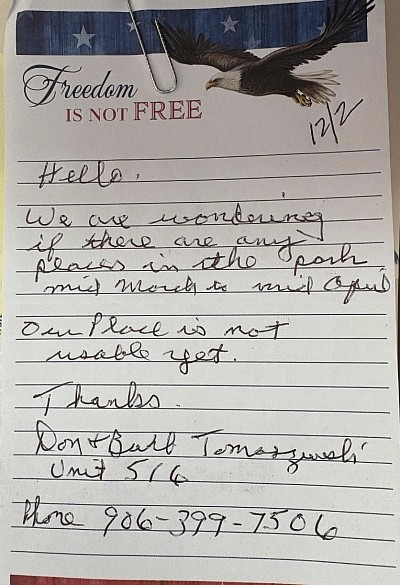 Freedom
IS NOT FREE
12/2
Hello,
We are wondering
if there are any
places in the park
mid March to mid April
Our Place is not
usable yet.
Thanks.
Don & Barb Tomaszewski
Unit 516
Phone 906-399-7506